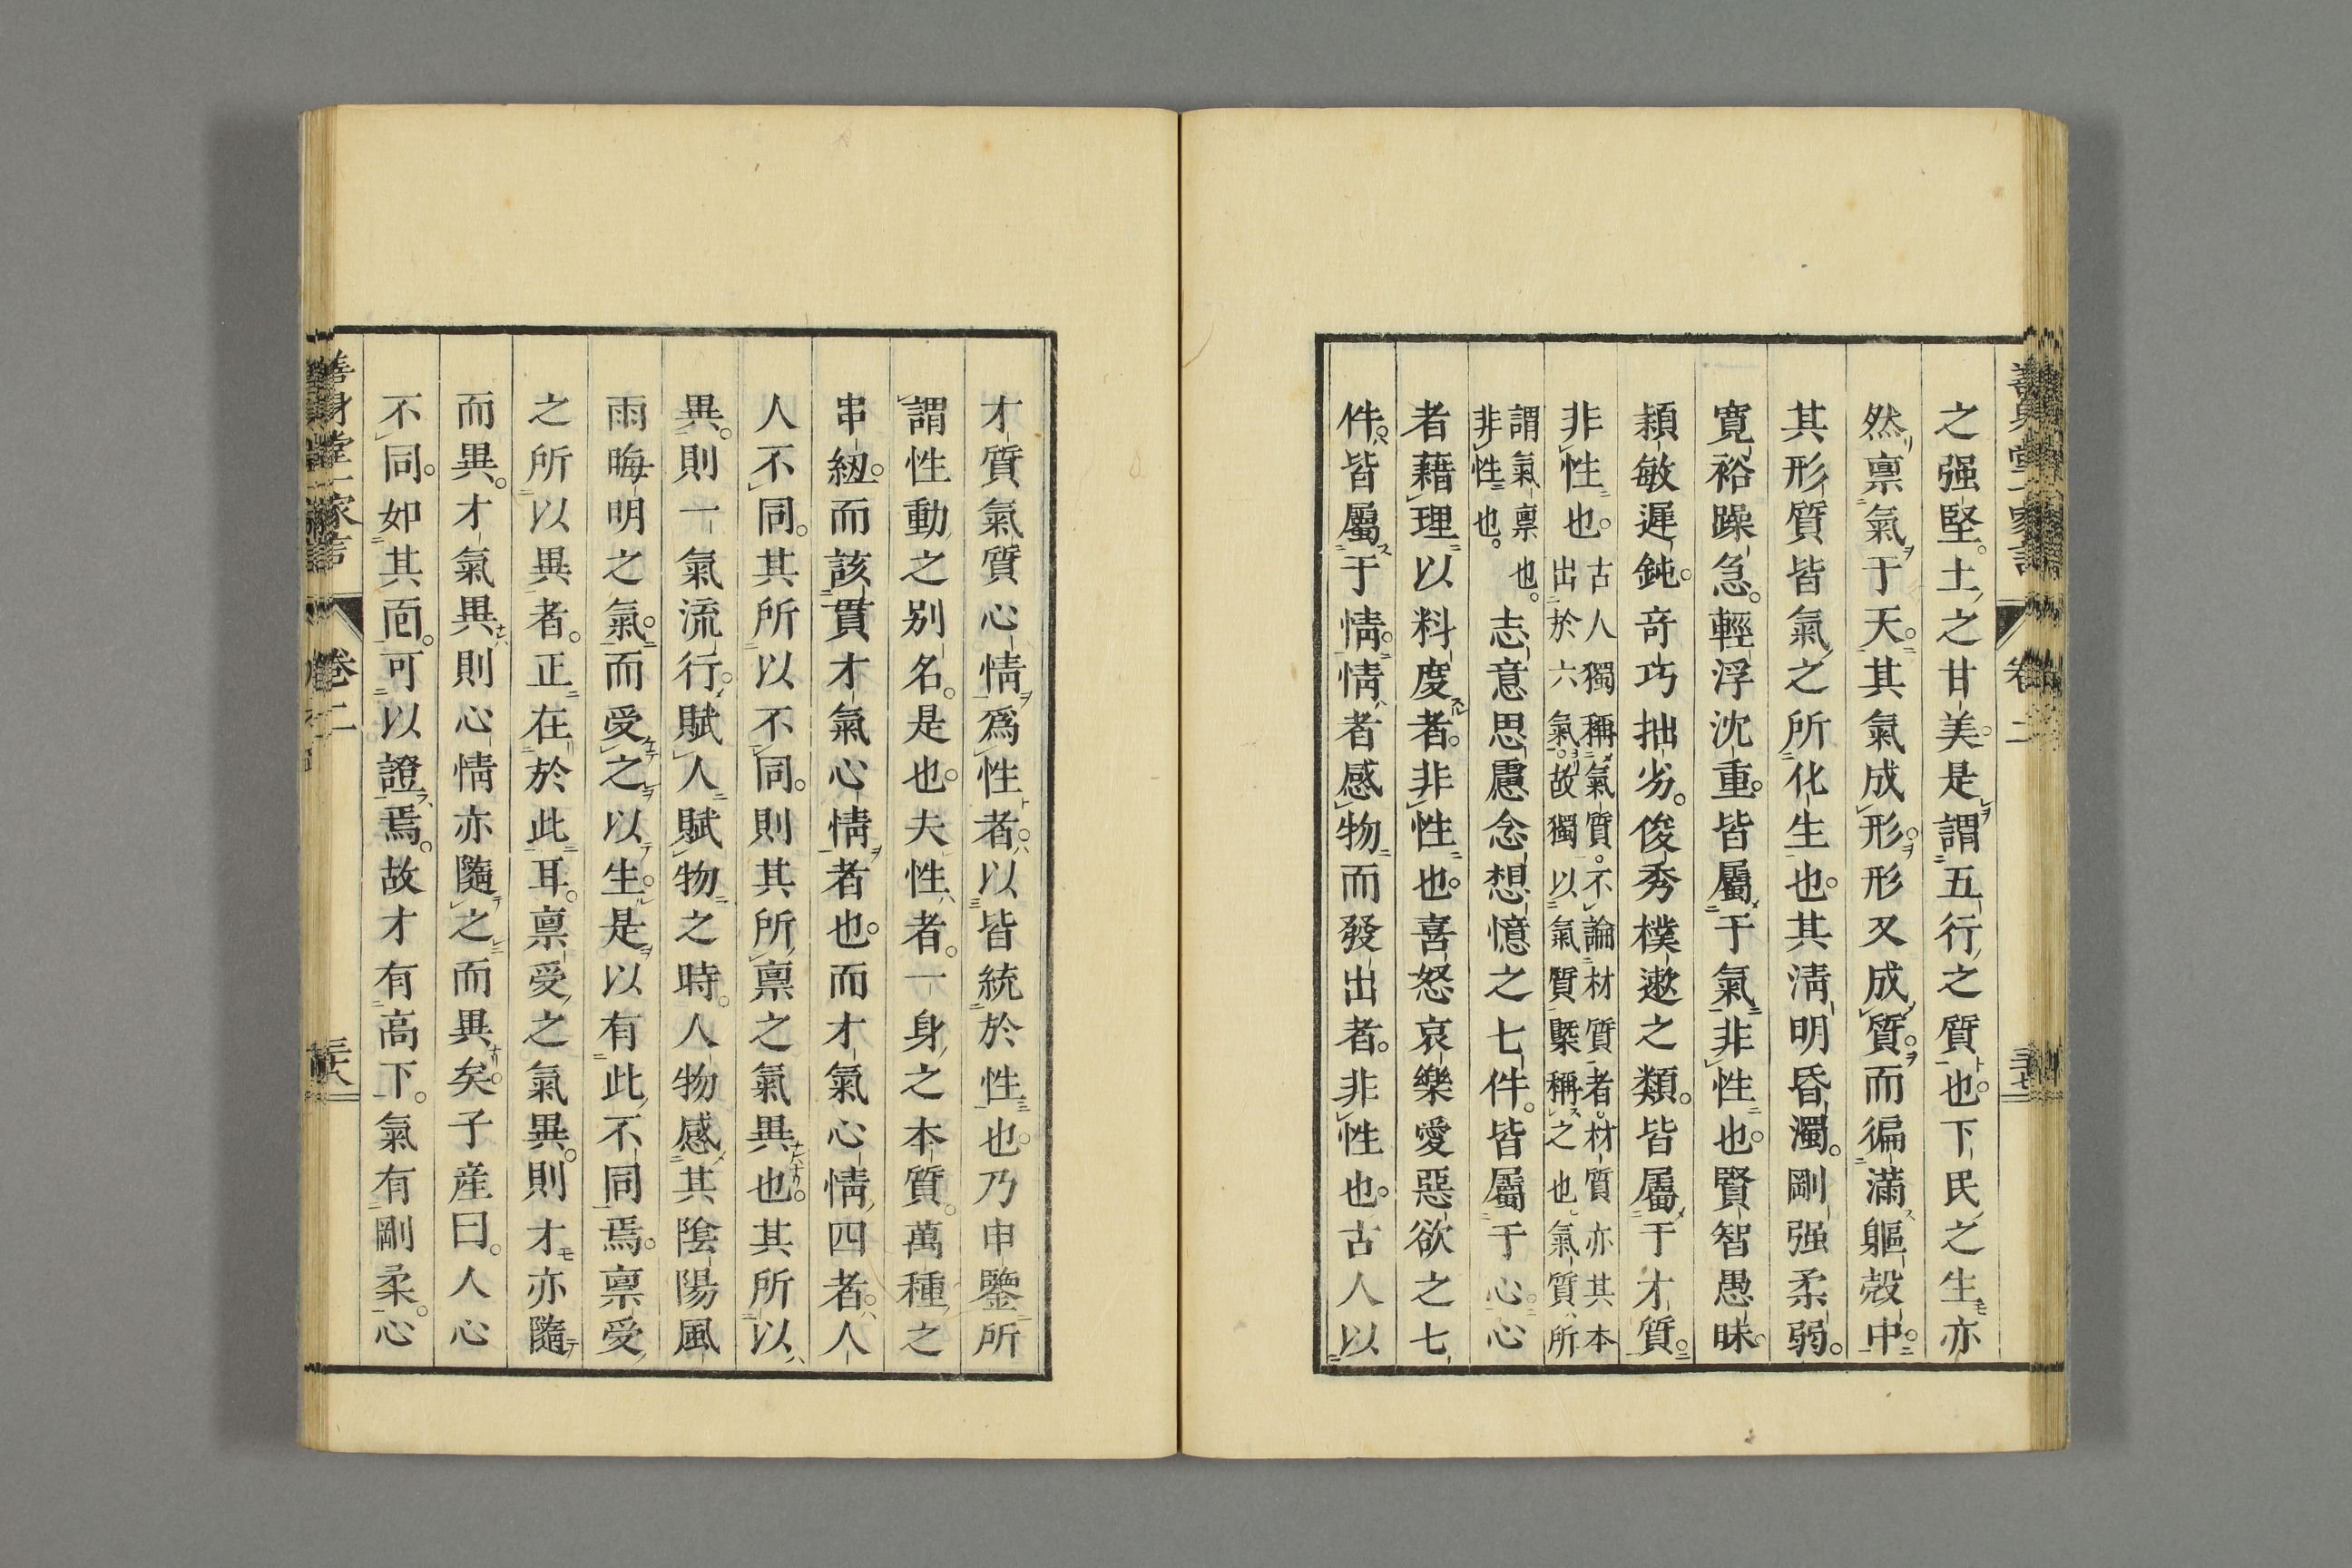 之强堅。土之甘美。是謂五行之質也。下民之生亦
然稟氣于天。其氣成形。形又成質。而徧滿軀殻中。
其形質皆氣之所化生也。其淸明昏濁。剛强柔弱。
寛裕躁急。輕浮沈重。皆屬于氣非性也。賢智愚昧。
穎敏遲鈍。奇巧拙劣。俊秀樸遬之類。皆屬于才質。
非性也。古人獨稱氣質。不論材質者。材質亦其本
出於六氣。故獨以氣質槩稱之也。氣質所
謂氣稟也。
非性也。
志意思慮念想憶之七件。皆屬于心。心
者藉理以料度者。非性也。喜怒哀樂愛惡欲之七
件。皆屬于情。情者感物而發出者。非性也。古人以
才質氣質心情爲性者。以皆統於性也。乃申鑒所
謂性動之别名。是也。夫性者。一身之本質。萬種之
串紉。而該貫才氣心情者也。而才氣心情四者。人
人不同。其所以不同。則其所稟之氣異也。其所以
異。則一氣流行。賦人賦物之時。人物感其陰陽風
雨晦明之氣。而受之以生。是以有此不同焉。稟受
之所以異者。正在於此耳。稟受之氣異。則才亦隨
而異。才氣異則心情亦隨之而異矣。子産曰。人心
不同。如其面。可以證焉。故才有高下。氣有剛柔。心
卷二